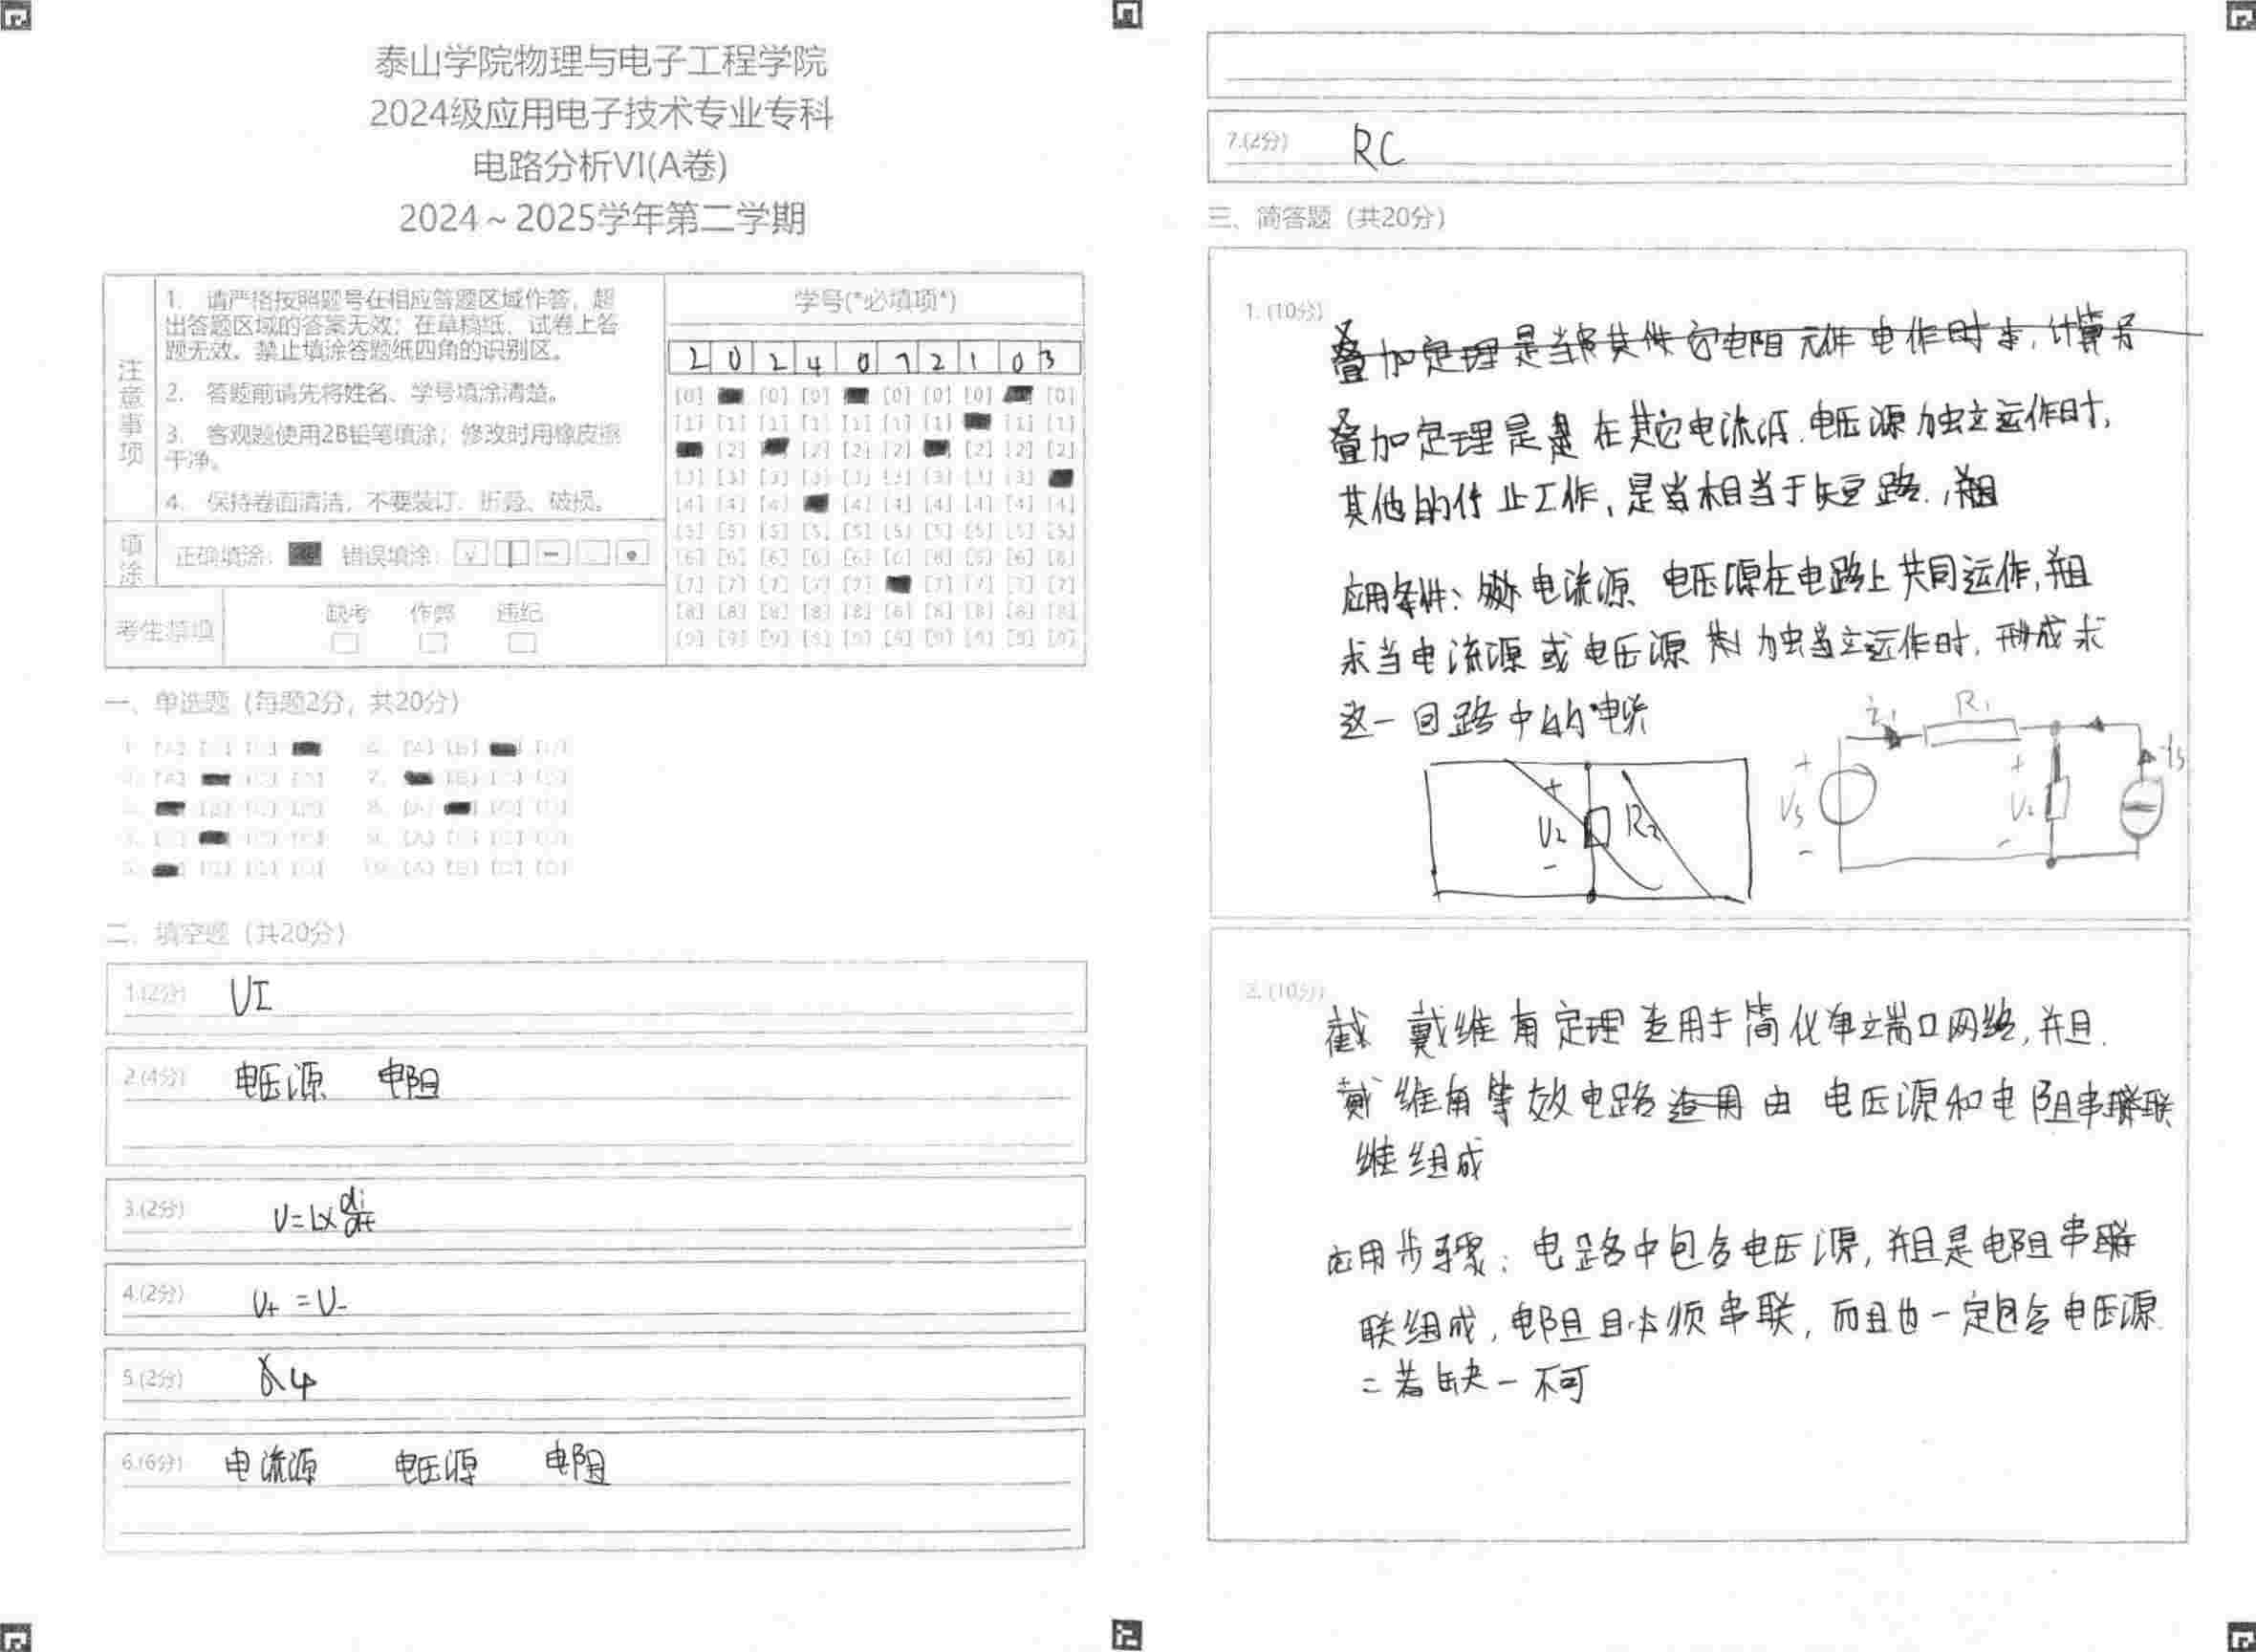 泰山学院物理与电子工程学院
2024级应用电子技术专业专科
电路分析VI(A卷)
2024～2025学年第二学期
注意事项
1. 请严格按照题号在相应答题区域作答，超
出答题区域的答案无效；在草稿纸、试卷上答
题无效。禁止填涂答题纸四角的识别区。
2. 答题前请先将姓名、学号填涂清楚。
3. 客观题使用2B铅笔填涂；修改时用橡皮擦
干净。
4. 保持卷面清洁，不要装订、折叠、破损。
填涂
正确填涂： 错误填涂：
考生禁填
缺考 作弊 违纪
学号(*必填项*)
2 0 2 4 0 7 2 1 0 3
一、单选题（每题2分，共20分）
二、填空题（共20分）
1.(2分) UI
2.(4分) 电压源 电阻
3.(2分) U=L×di/dt
4.(2分) U+ =U-
5.(2分) 4
6.(6分) 电流源 电压源 电阻
7.(2分) RC
三、简答题（共20分）
1. (10分)
叠加定理是当 电阻元件 计算
叠加定理是 在其它电流源.电压源独立运作时,
其他的停止工作,是 相当于短路.
应用条件: 电流源 电压源在电路上共同运作,并且
求当电流源或电压源 独立运作时, 求
这一回路中的电流
U2 R2
R1
U2
2. (10分)
戴维南定理适用于简化单端口网络,并且.
戴维南等效电路 由 电压源和电阻串联
组成
应用步骤: 电路中包含电压源,并且是电阻串联
联组成,电阻 须串联,而且也一定包含电压源.
二者缺一不可